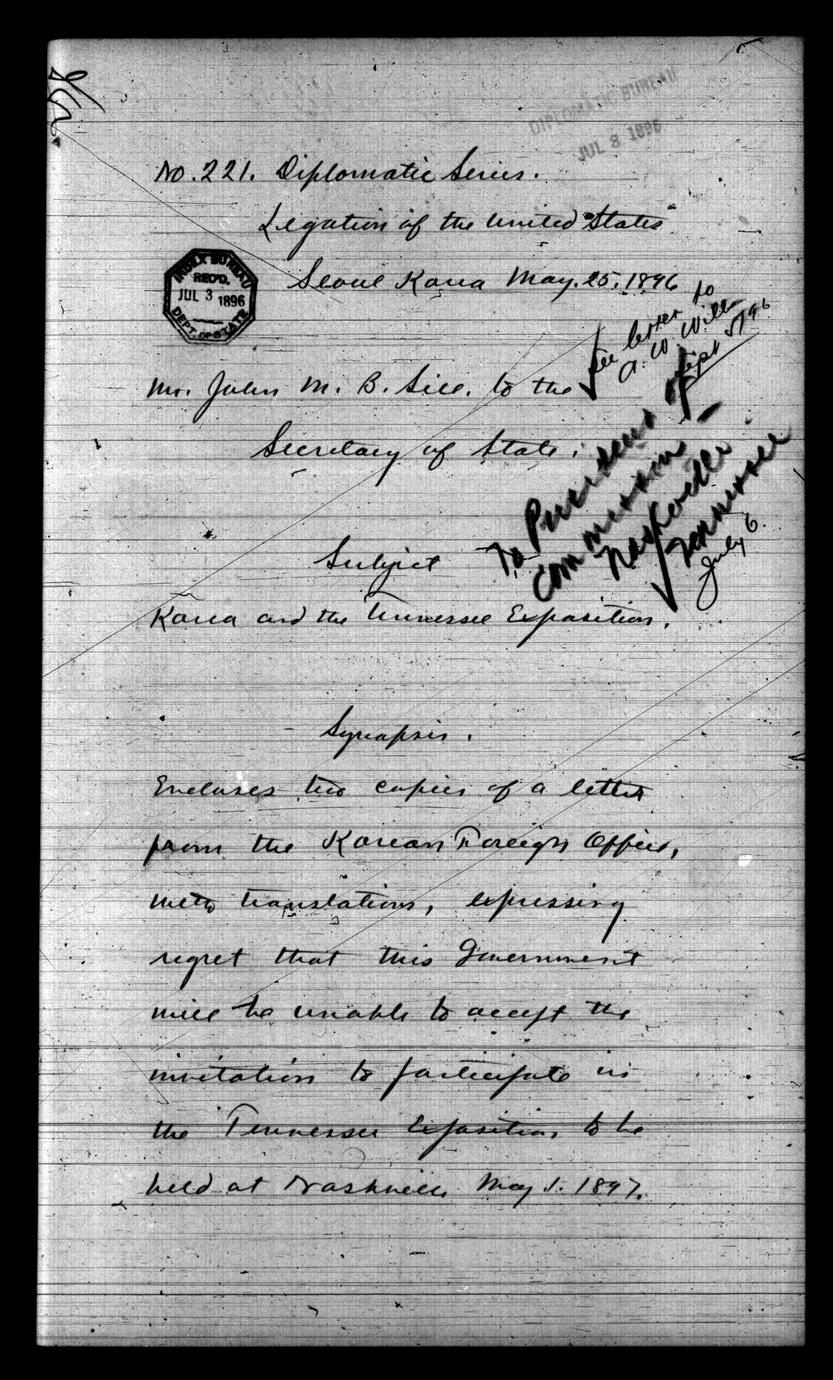 DIPLOMATIC BUREAU
JUL 8 1896
No. 221. Diplomatic Series.
Legation of the United States
Seoul Korea May. 25, 1896
INDEX BUREAU
REC'D.
JUL 3 1896
DEPT. OF STATE
see letter to
A. W. Wills
Sept 5/96
Mr. John M. B. Sill. to the
Secretary of State.
To President of
Commission
Nashville
Tennessee
July 6.
Subject
Korea and the Tennessee Exposition.
Synopsis.
Encloses two copies of a letter
from the Korean Foreign Office,
with translations, expressing
regret that this Government
will be unable to accept the
invitation to participate in
the Tennessee Exposition, to be
held at Nashville May 1. 1897.